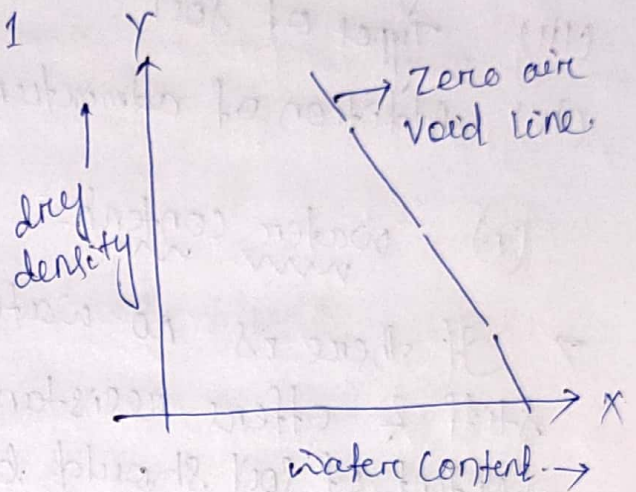 1
Y
Zero air
void line.
dry
density
X
water content →